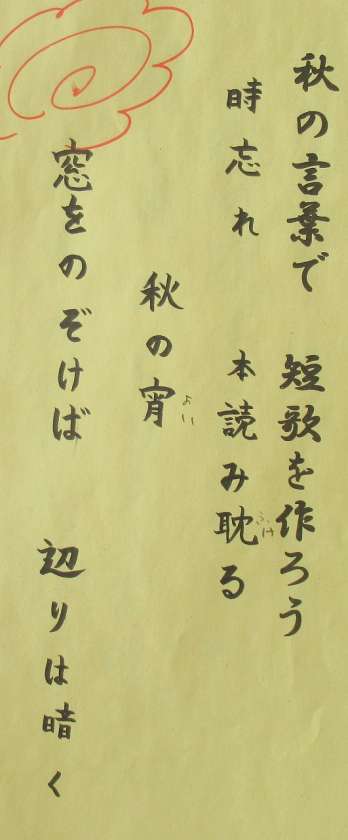 秋の言葉で 短歌を作ろう
時忘れ 本読み耽る
ふけ
秋の宵
よい
窓をのぞけば 辺りは暗く